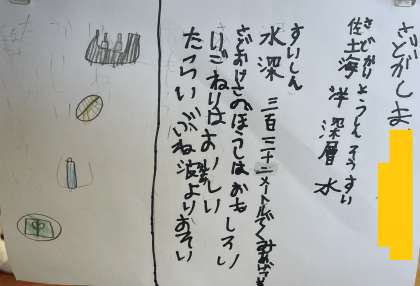 さどがしま
さどかいようしんそうすい
佐土海洋深層水
すいしん
水深 三百三十二メートルでくみあげた
さどおけさのぼうしはおもしろい
いごねりはおいしい
たらいぶね波よりおそい